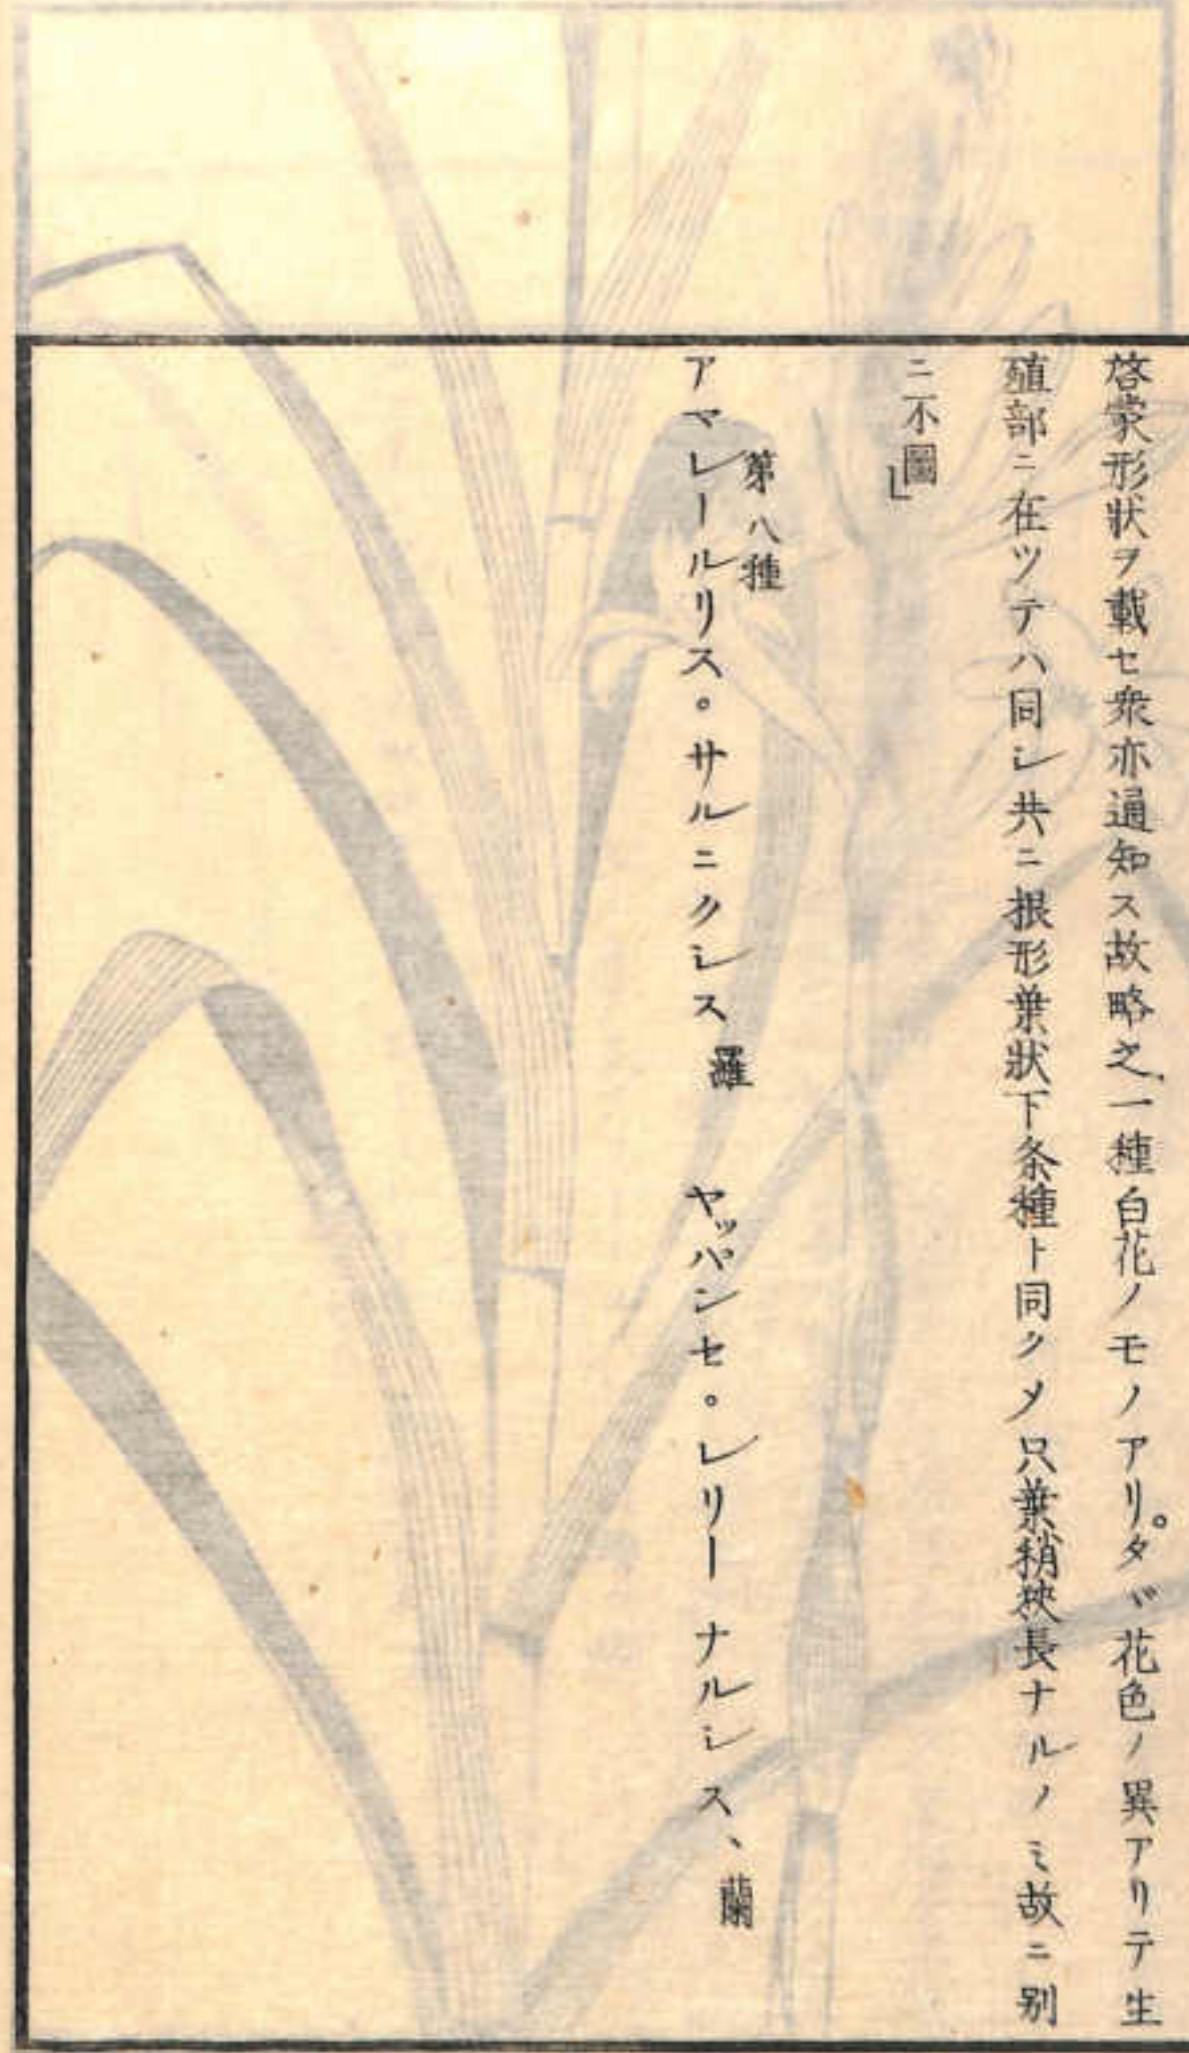 啓蒙形狀ヲ載セ衆亦通知ス故略之、一種白花ノモノアリ。タヾ花色ノ異アリテ生
殖部ニ在ツテハ同シ共ニ根形葉狀下条種ト同クメ只葉稍狹長ナルノミ故ニ別
ニ不圖」
第八種
アマレールリス。サルニクシス 羅 ヤッパンセ。レリー ナルシス、蘭